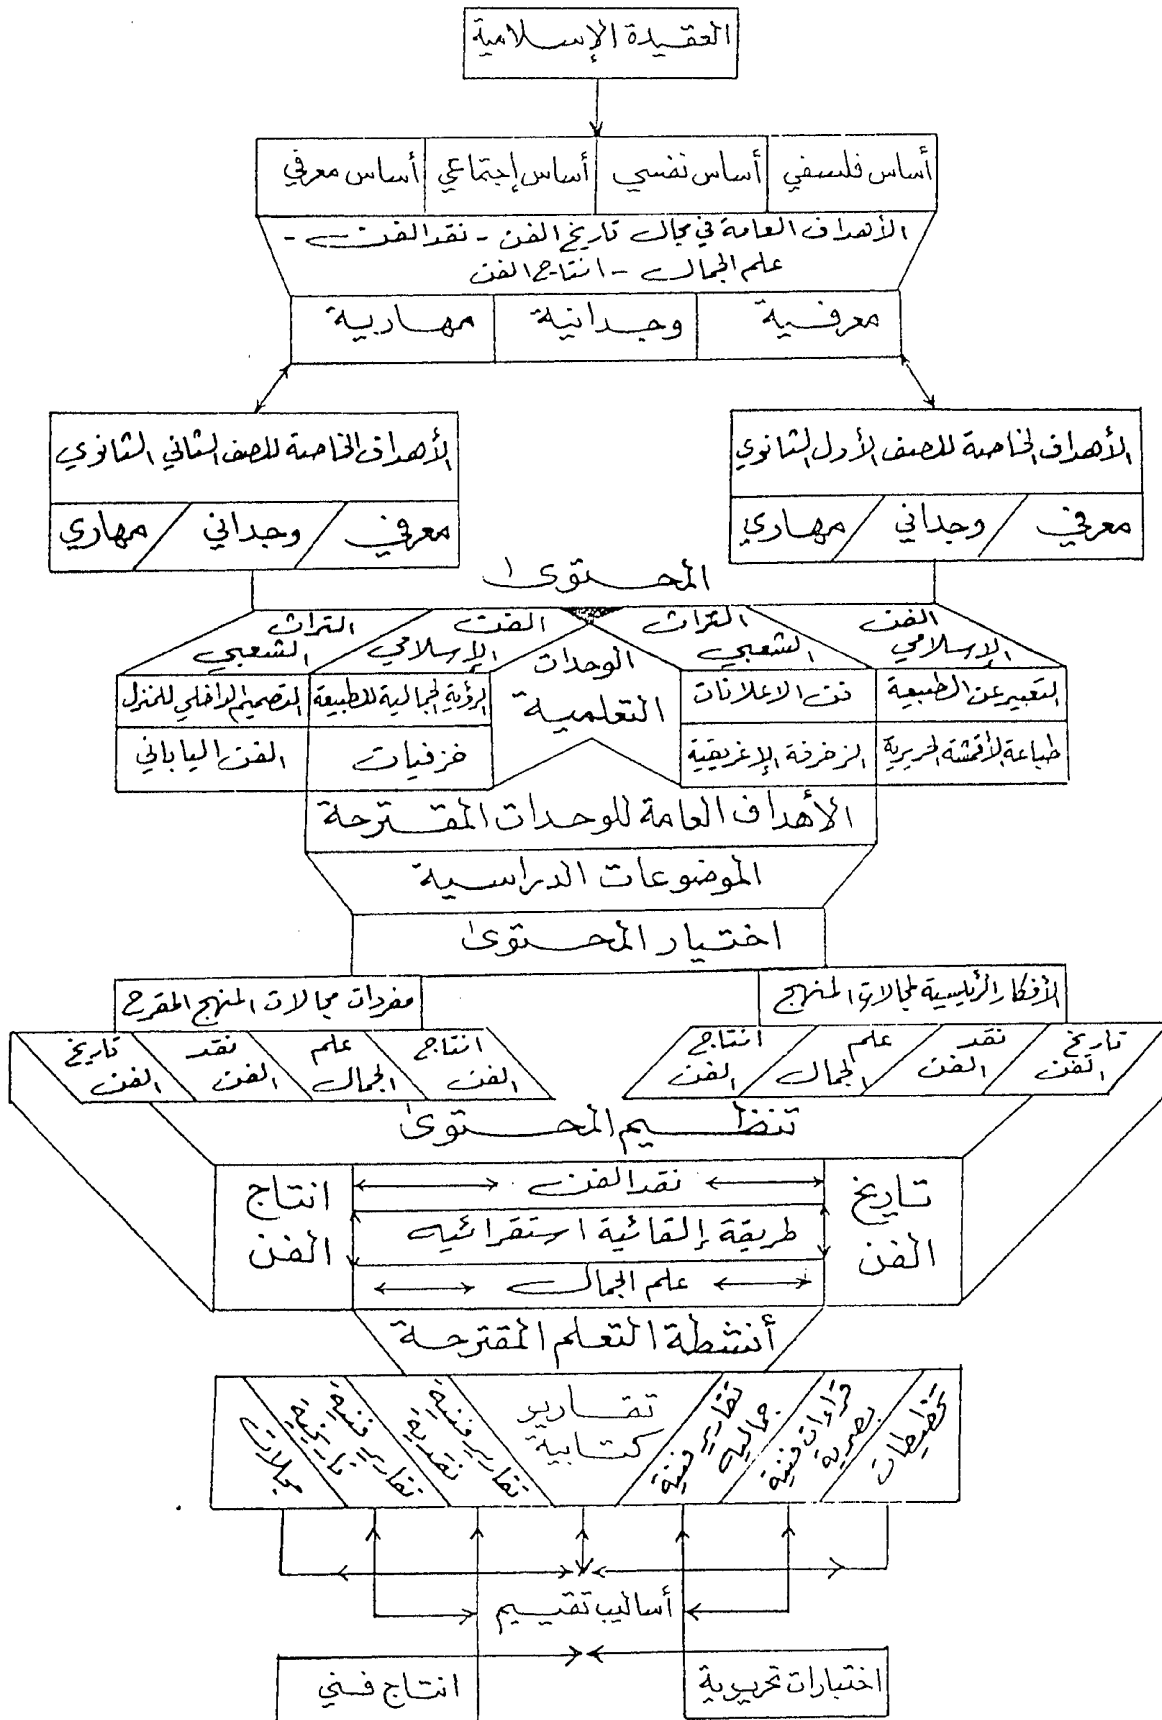 العقيدة الإسلامية
أساس فلسفي أساس نفسي أساس إجتماعي أساس معرفي
الأهداف العامة في مجال تاريخ الفن - نقد الفن -
علم الجمال - انتاج الفن
معرفية وجدانية مهارية
الأهداف الخاصة للصف الأول الثانوي
معرفي / وجداني / مهاري
الأهداف الخاصة للصف الثاني الثانوي
معرفي / وجداني / مهاري
المحتوى
الفن الإسلامي
التراث الشعبي
الوحدات
التعلمية
الفن الإسلامي
التراث الشعبي
التعبير عن الطبيعة
فن الاعلانات
الرؤية الجمالية للطبيعة
التصميم الداخلي للمنزل
طباعة الأقمشة الحريرية
الزخرفة الإغريقية
خزفيات
الفن الياباني
الأهداف العامة للوحدات المقترحة
الموضوعات الدراسية
اختيار المحتوى
الأفكار الرئيسية لمجالات المنهج
مفردات مجالات المنهج المقترح
تاريخ الفن
نقد الفن
علم الجمال
انتاج الفن
انتاج الفن
علم الجمال
نقد الفن
تاريخ الفن
تنظيم المحتوى
تاريخ
الفن
نقد الفن
طريقة إلقائية استقرائيه
علم الجمال
انتاج
الفن
أنشطة التعلم المقترحة
تخطيطات
قراءات فنية
بصرية
تقارير فنية
جماليه
تقارير
كتابية
تقارير فنية
نقدية
تقارير فنية
تاريخية
مجلات
أساليب تقييم
اختبارات تحريرية
انتاج فني